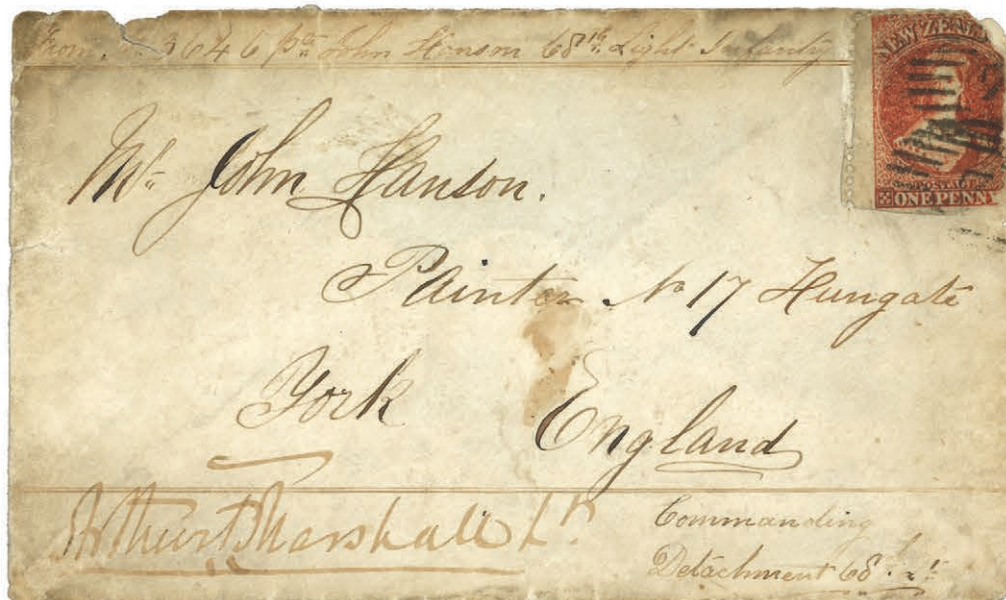 From. 3646 Pte John Hanson 68th Light Infantry
NEW ZEAL
POSTAGE
ONE PENNY
Mr John Hanson.
Painter No 17 Hungate
York England
Arthur Marshall Lt.
Commanding
Detachment 68th